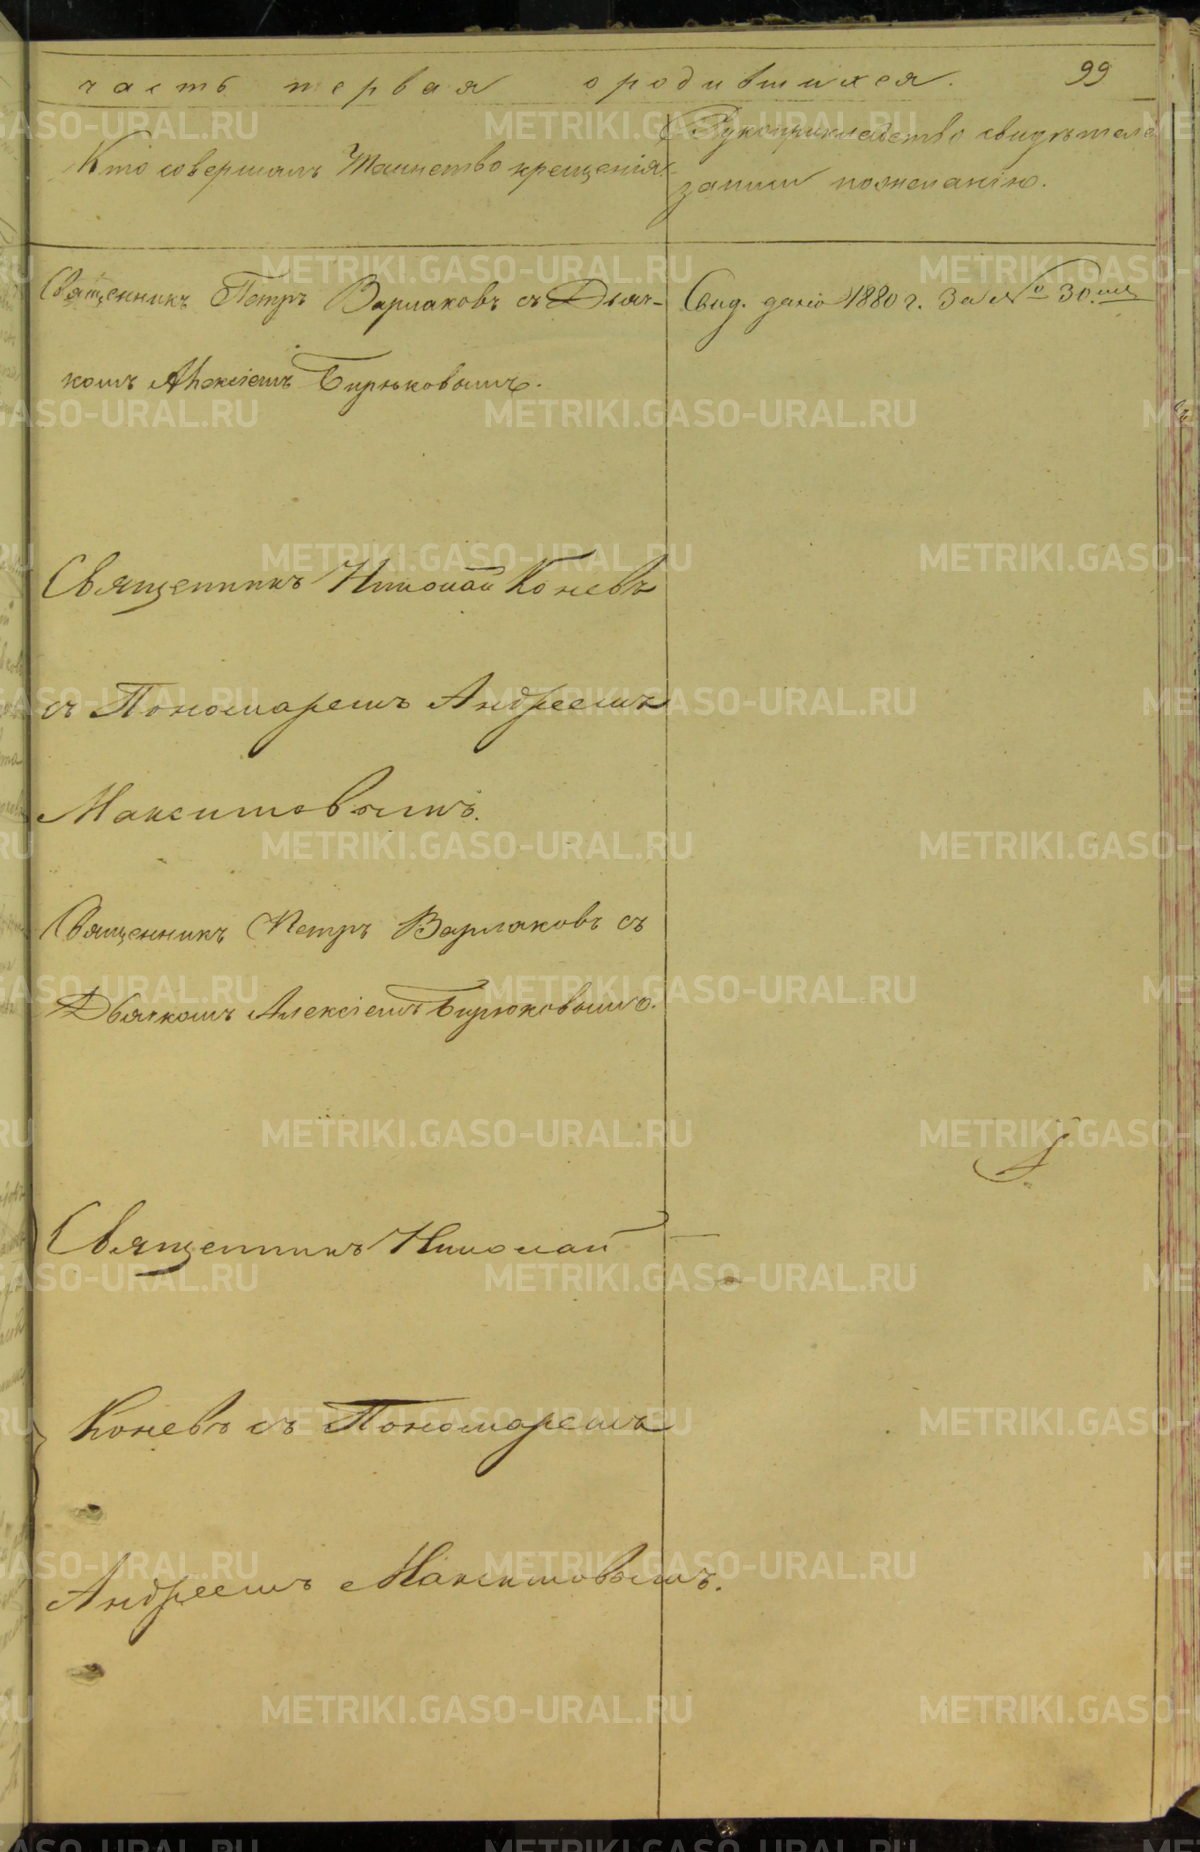 часть первая о родившихся. 99
Кто совершалъ Таинство крещенія.
Рукоприкладство свидѣтеле
записи по желанію.
Священникъ Петръ Варлаковъ съ Дьяч-
комъ Алексіемъ Бирюковымъ.
Свид. дано 1880 г. За № 30.
Священникъ Николай Коневъ
съ Пономаремъ Андреемъ
Максимовымъ.
Священникъ Петръ Варлаковъ съ
Дьячкомъ Алексіемъ Бирюковымъ.
Священникъ Николай
Коневъ съ Пономаремъ
Андреемъ Максимовымъ.
METRIKI.GASO-URAL.RU